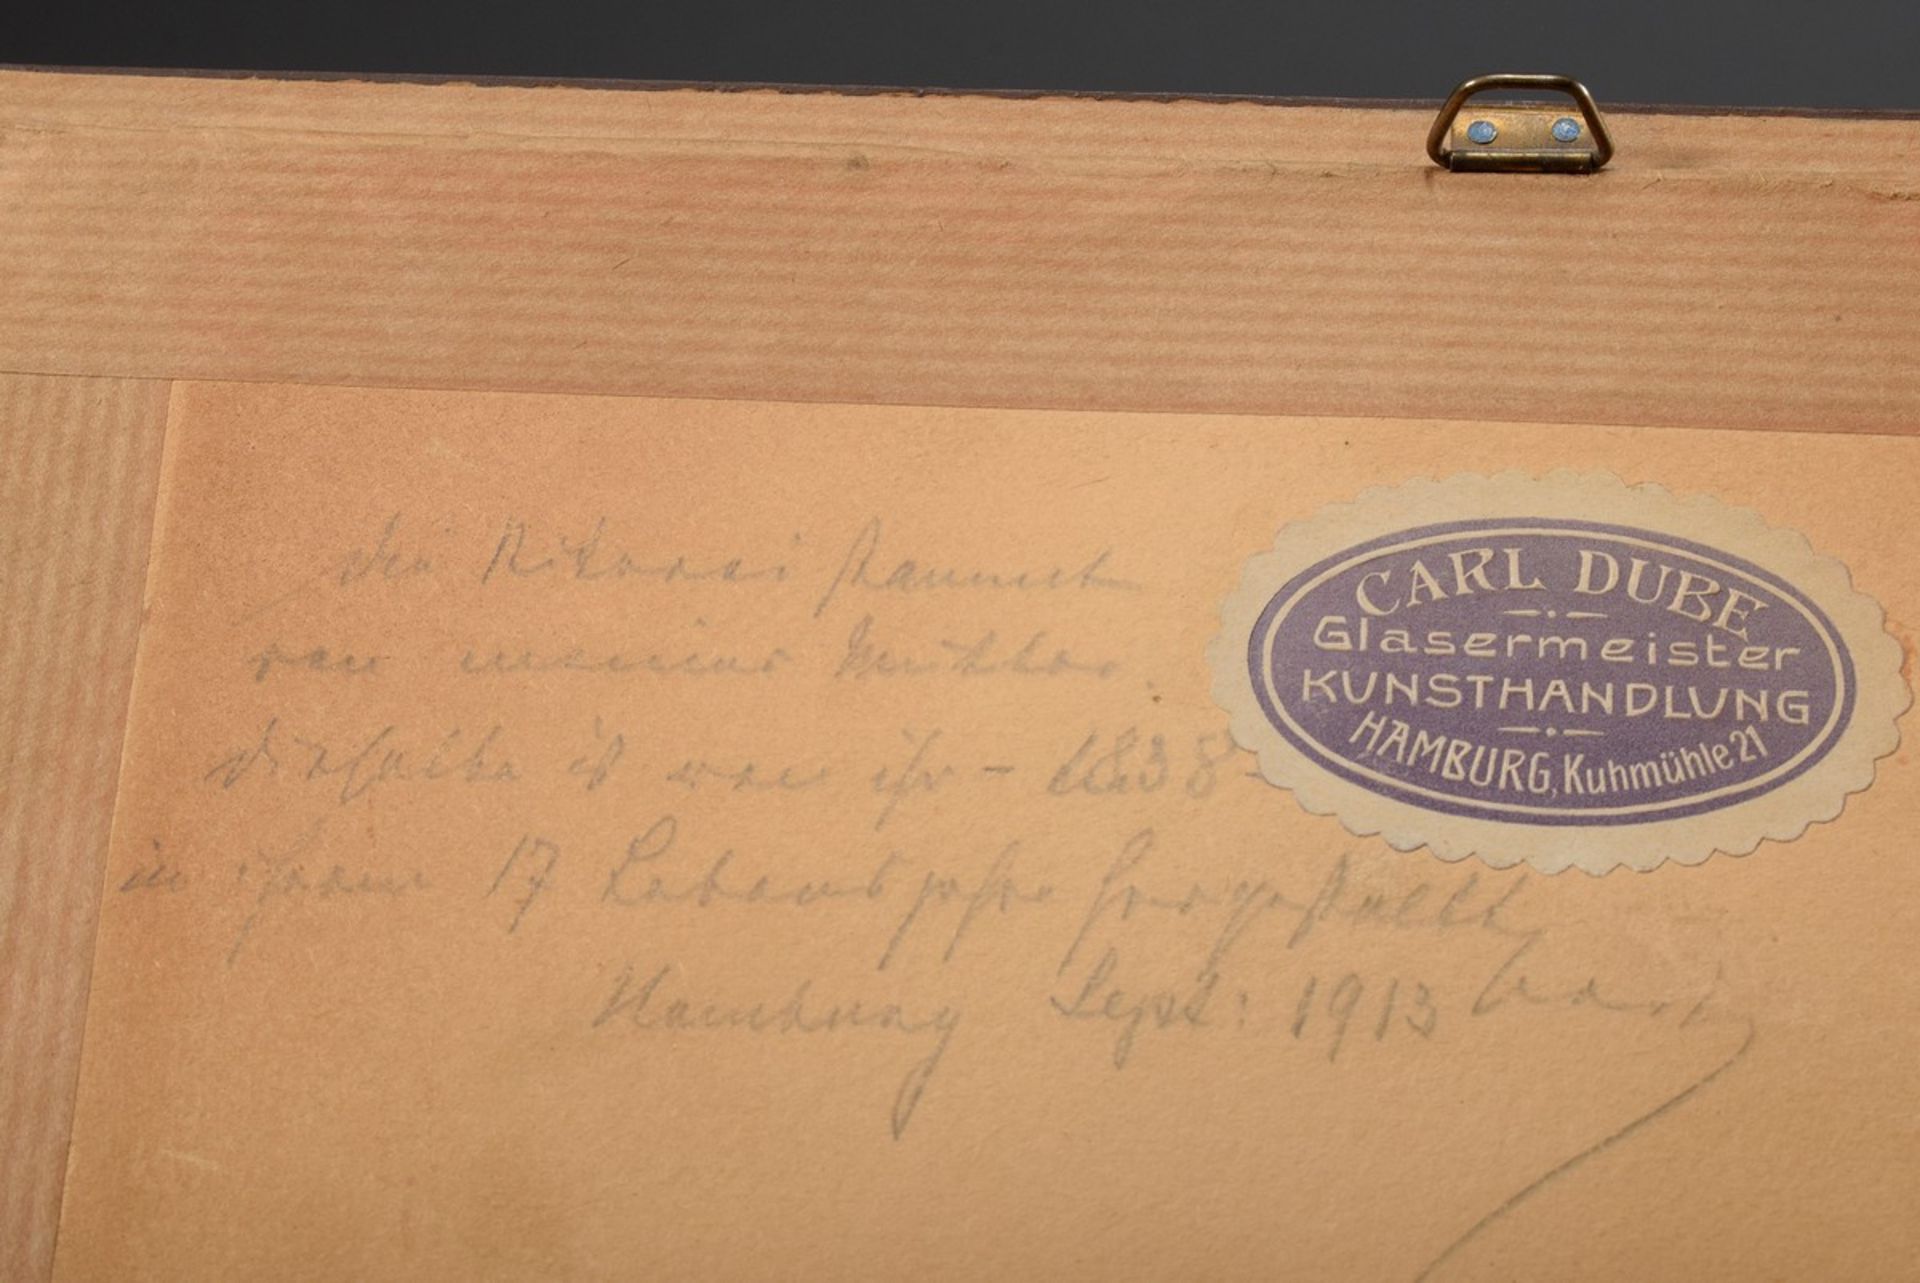 die Stikerei stammt
von meiner Mutter.
dieselbe ist von ihr - 1838 -
in ihrem 17 Lebensjahre hergestellt
Hamburg Sept: 1913
CARL DUBE
Glasermeister
KUNSTHANDLUNG
HAMBURG, Kuhmühle 21